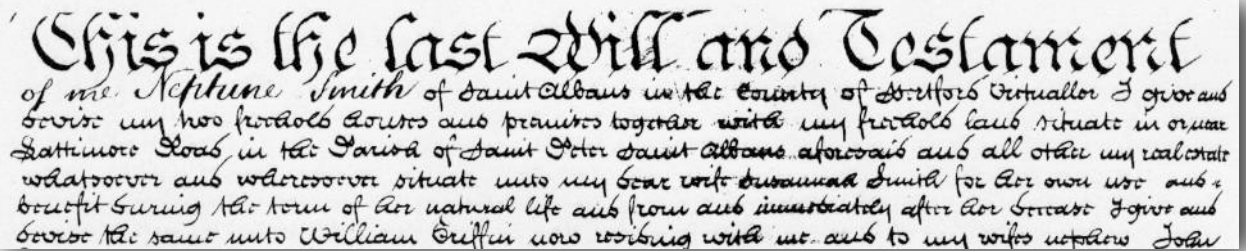 This is the last Will and Testament
of me Neptune Smith of Saint Albans in the County of Hertford Victualler I give and
devise my two freehold houses and premises together with my freehold land situate in or near
Hattimore Road in the Parish of Saint Peter Saint Albans aforesaid and all other my real estate
whatsoever and wheresoever situate unto my dear wife Susannah Smith for her own use and
benefit during the term of her natural life and from and immediately after her decease I give and
devise the same unto William Griffin now residing with me and to my wifes nephew John